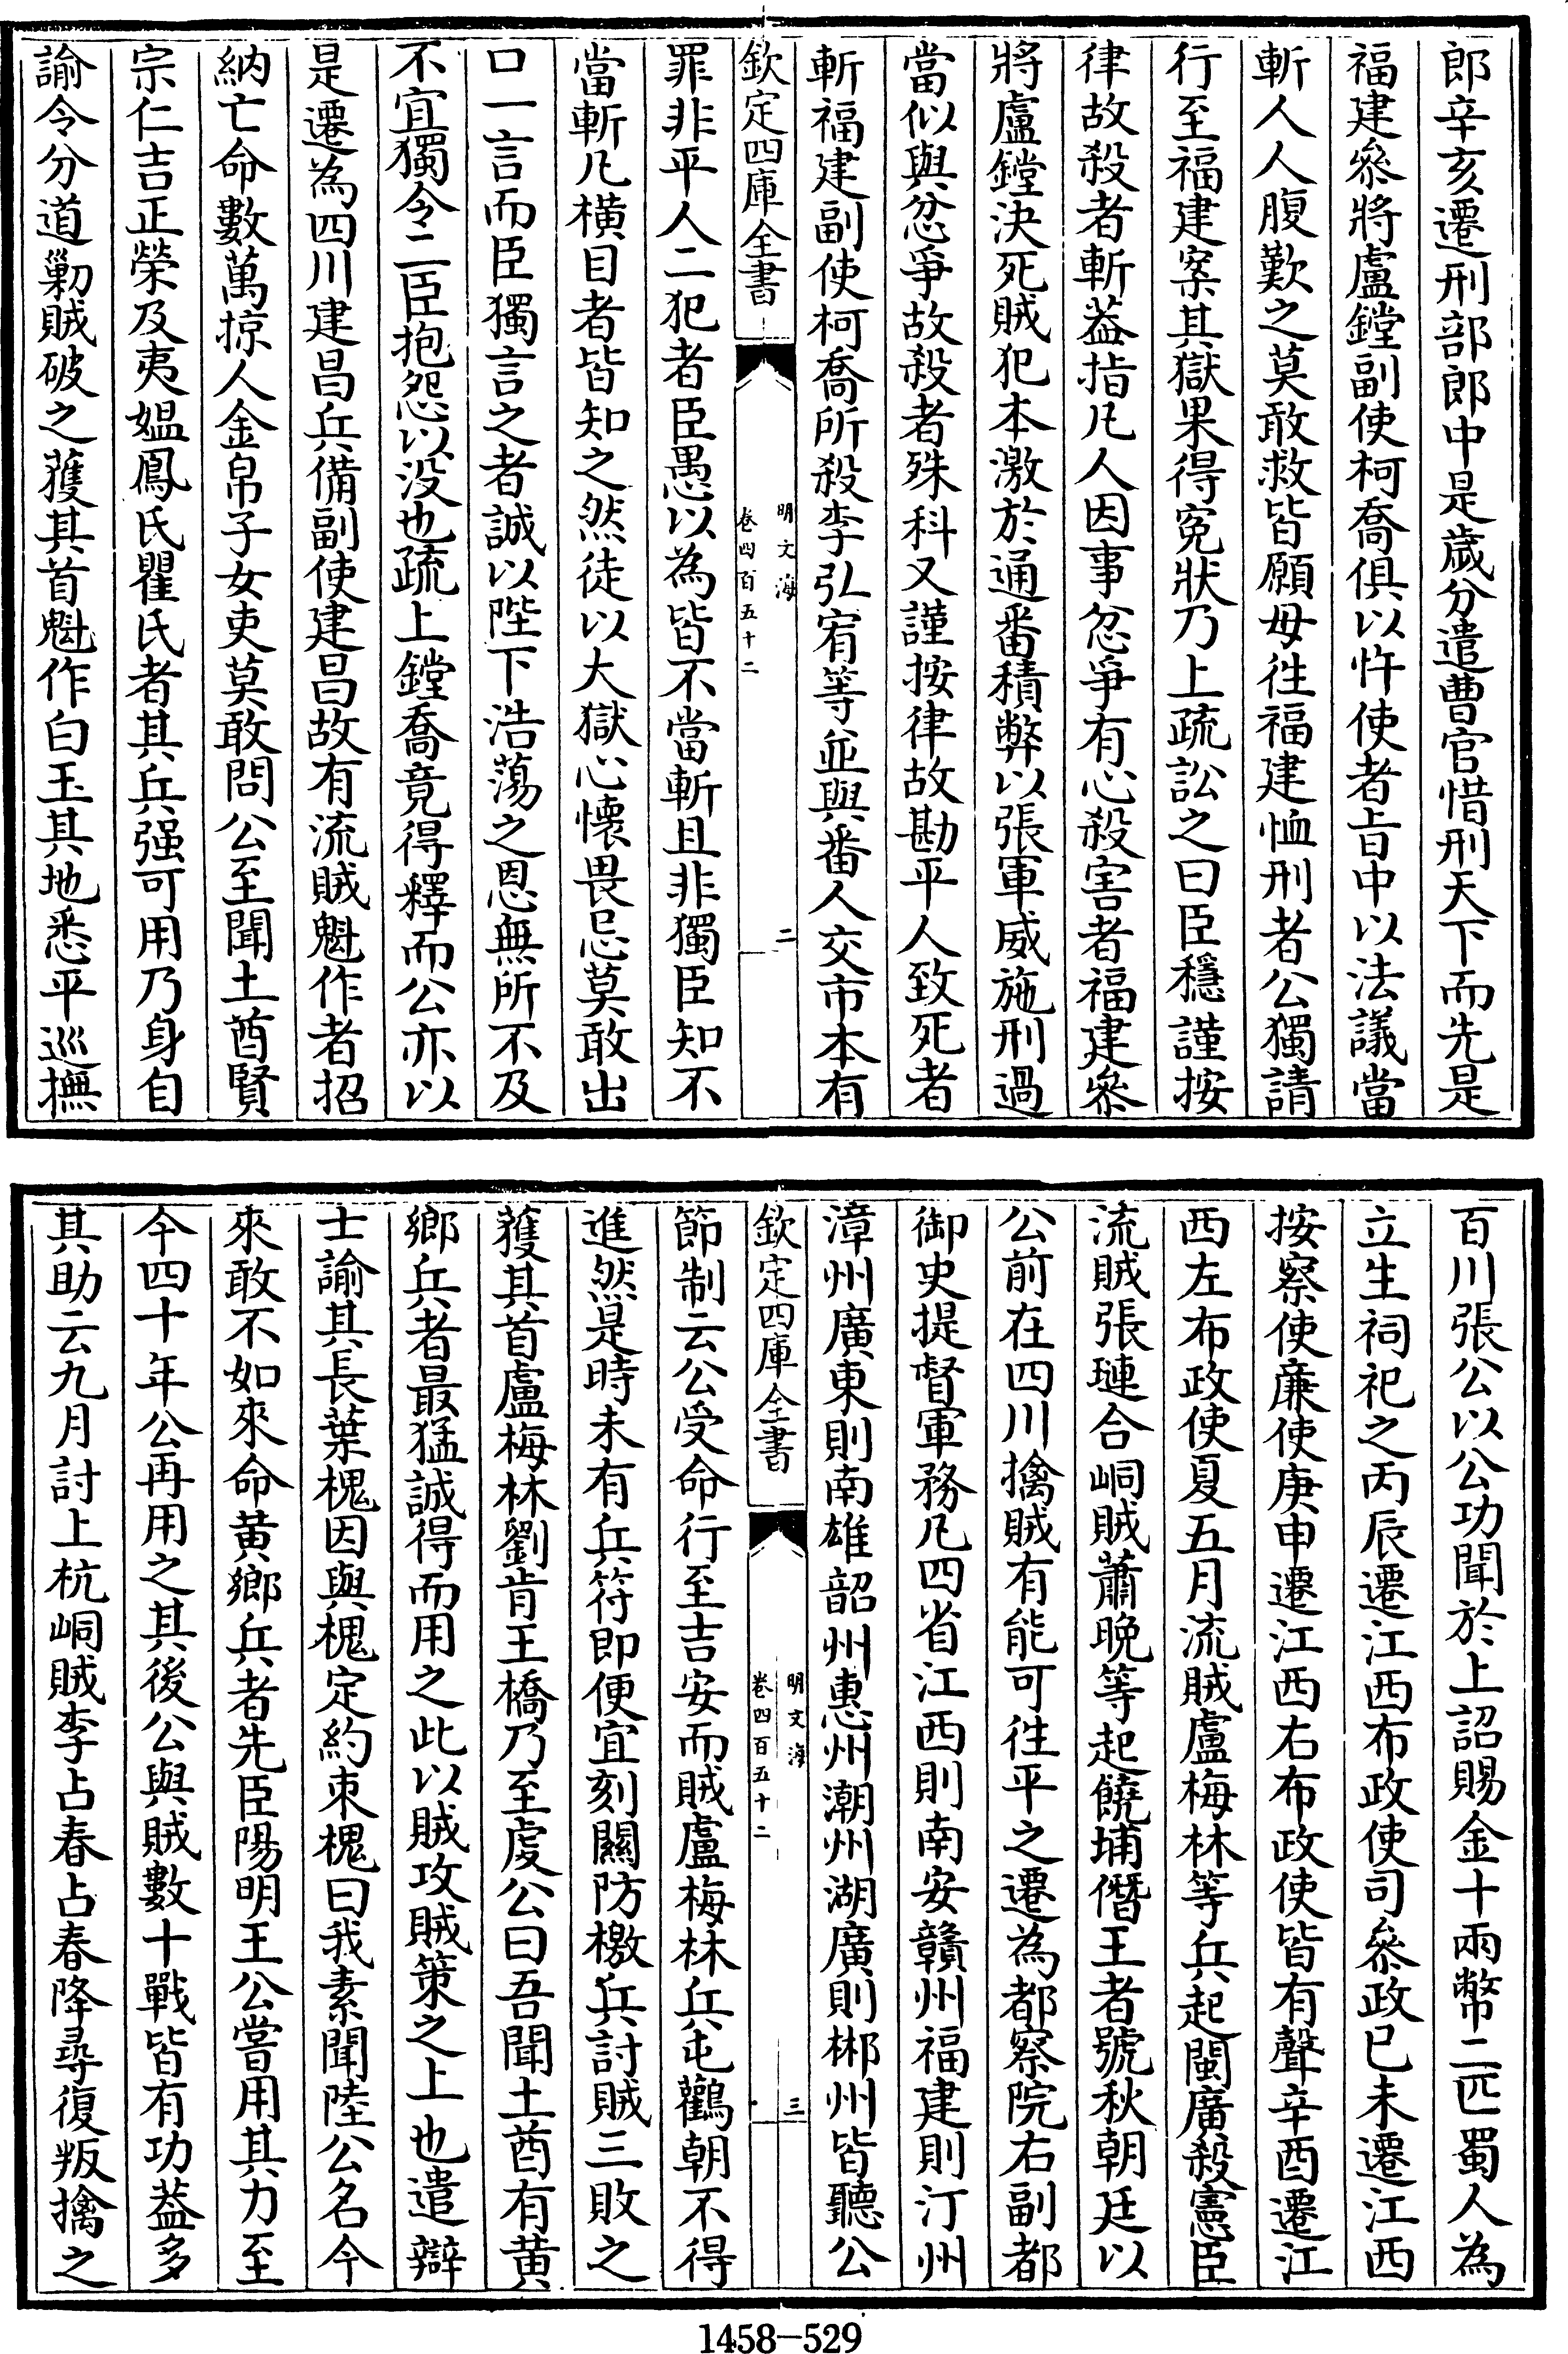 郎辛亥遷刑部郎中是歳分遣曹官惜刑天下而先是
福建叅將盧鏜副使柯喬俱以忤使者㫖中以法議當
斬人人腹歎之莫敢救皆願毋往福建恤刑者公獨請
行至福建案其獄果得寃狀乃上疏訟之曰臣穩謹按
律故殺者斬葢指凡人因事忿爭有心殺害者福建叅
將盧鏜決死賊犯本激於通番積弊以張軍威施刑過
當似與忿爭故殺者殊科又謹按律故勘平人致死者
斬福建副使柯喬所殺李弘宥等並與番人交市本有
欽定四庫全書
明文海
卷四百五十二
二
罪非平人二犯者臣愚以為皆不當斬且非獨臣知不
當斬凡横目者皆知之然徒以大獄心懷畏忌莫敢出
口一言而臣獨言之者誠以陛下浩蕩之恩無所不及
不宜獨令二臣抱怨以没也疏上鏜喬竟得釋而公亦以
是遷為四川建昌兵備副使建昌故有流賊魁作者招
納亡命數萬掠人金帛子女吏莫敢問公至聞土酋賢
宗仁吉正榮及夷媪鳳氏瞿氏者其兵强可用乃身自
諭令分道勦賊破之獲其首魁作白玉其地悉平巡撫
百川張公以公功聞於上詔賜金十兩幣二匹蜀人為
立生祠祀之丙辰遷江西布政使司叅政已未遷江西
按察使亷使庚申遷江西右布政使皆有聲辛酉遷江
西左布政使夏五月流賊盧梅林等兵起閩廣殺憲臣
流賊張璉合峒賊蕭晚等起饒埔僭王者號秋朝廷以
公前在四川擒賊有能可往平之遷為都察院右副都
御史提督軍務凡四省江西則南安贛州福建則汀州
漳州廣東則南雄韶州惠州潮州湖廣則郴州皆聽公
欽定四庫全書
明文海
卷四百五十二
三
節制云公受命行至吉安而賊盧梅林兵屯鸛朝不得
進然是時未有兵符即便宜刻關防檄兵討賊三敗之
獲其首盧梅林劉肯王橋乃至虔公曰吾聞土酋有黄
鄉兵者最猛誠得而用之此以賊攻賊策之上也遣辯
士諭其長葉槐因與槐定約束槐曰我素聞陸公名今
來敢不如來命黄鄉兵者先臣陽明王公嘗用其力至
今四十年公再用之其後公與賊數十戰皆有功葢多
其助云九月討上杭峒賊李占春占春降尋復叛擒之
1458-529